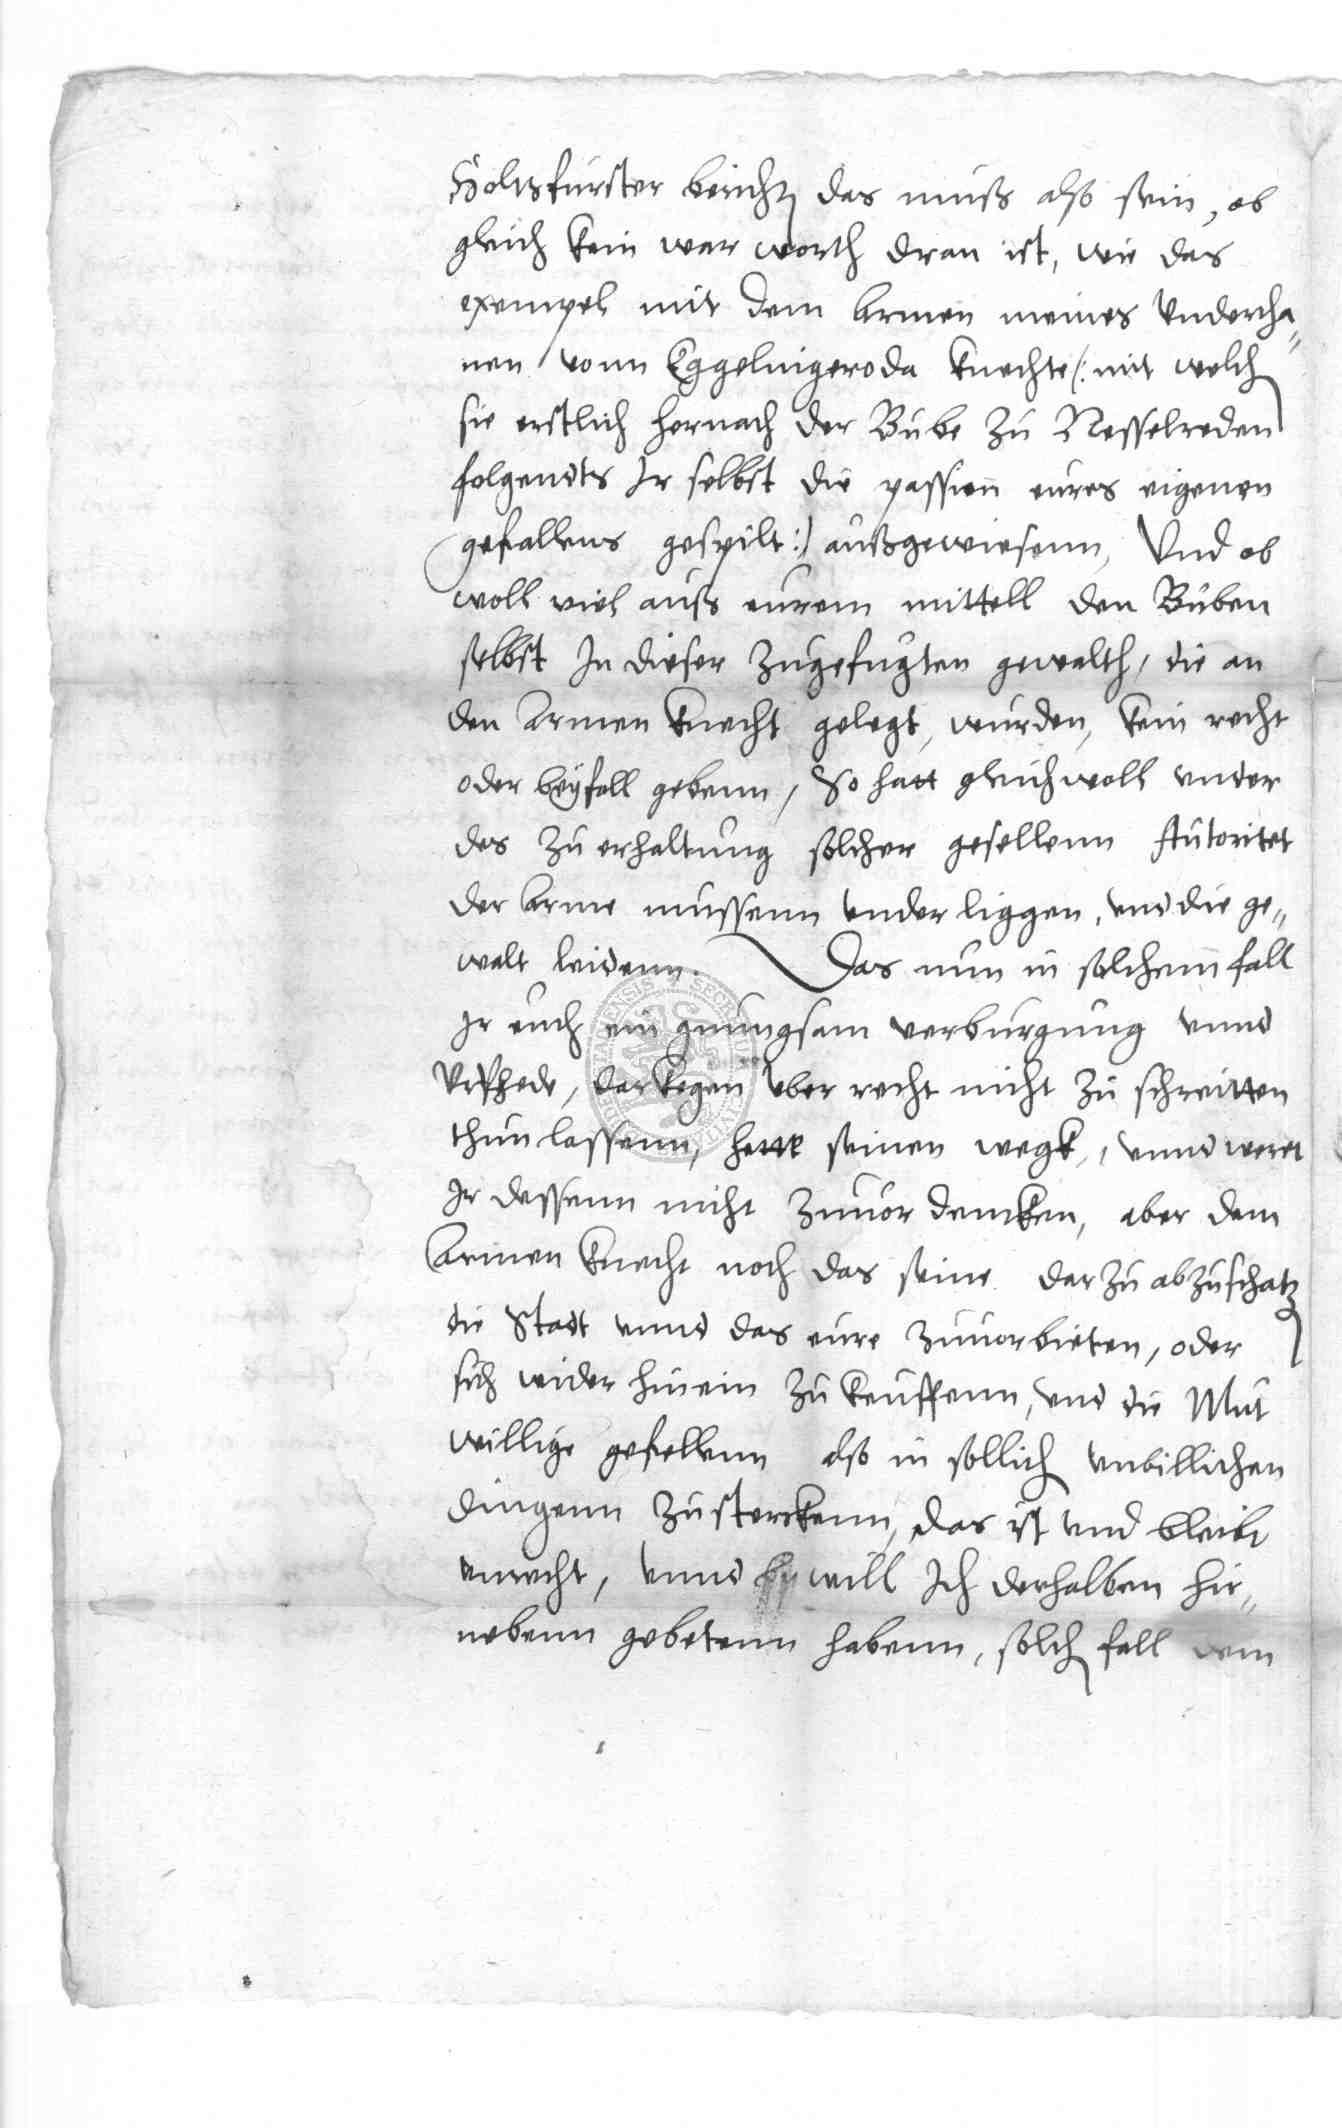 Holtzfurster bericht das muß also sein, ob
gleich kein war worth dran ist, wie das
exempel mit dem armen meines undertha„
nen vonn Eggelnigeroda knechte /: mit welch
sie erstlich hernach der Bube zu Nesselreden
folgendts Ir selbst die passionn eures eigenen
gefallens gespilt :/ außgewiesenn, Und ob
woll viel auß eurem mittell den Buben
selbst In dieser zugefugten gewalth, die an
den armen knecht gelegt, wurden, kein recht
oder beyfall gebenn, So hatt gleichwoll under
des zu erhaltung solcher gesellenn Autoritet
der arme mussenn under liggen, und die ge„
walt leidenn. Das nun in solchem fall
Ir euch ein gnungsam verburgung unnd
Urphede, darkegen uber recht nicht zu schreitten
thun lassenn, hette seinen wegk, unnd weret
Ir dessenn nicht zuuordencken, aber dem
armen knecht noch das seine darzu abzuschatz
die Stadt unnd das eure zuuorbieten, oder
sich wider hinein zu keuffenn, und die Mut
willige gesellenn also in sollich unbillichen
dingenn zusterckenn, das ist und bleibt
unrecht, unnd will Ich derhalben hir„
nebenn gebetenn habenn, solch fall dem